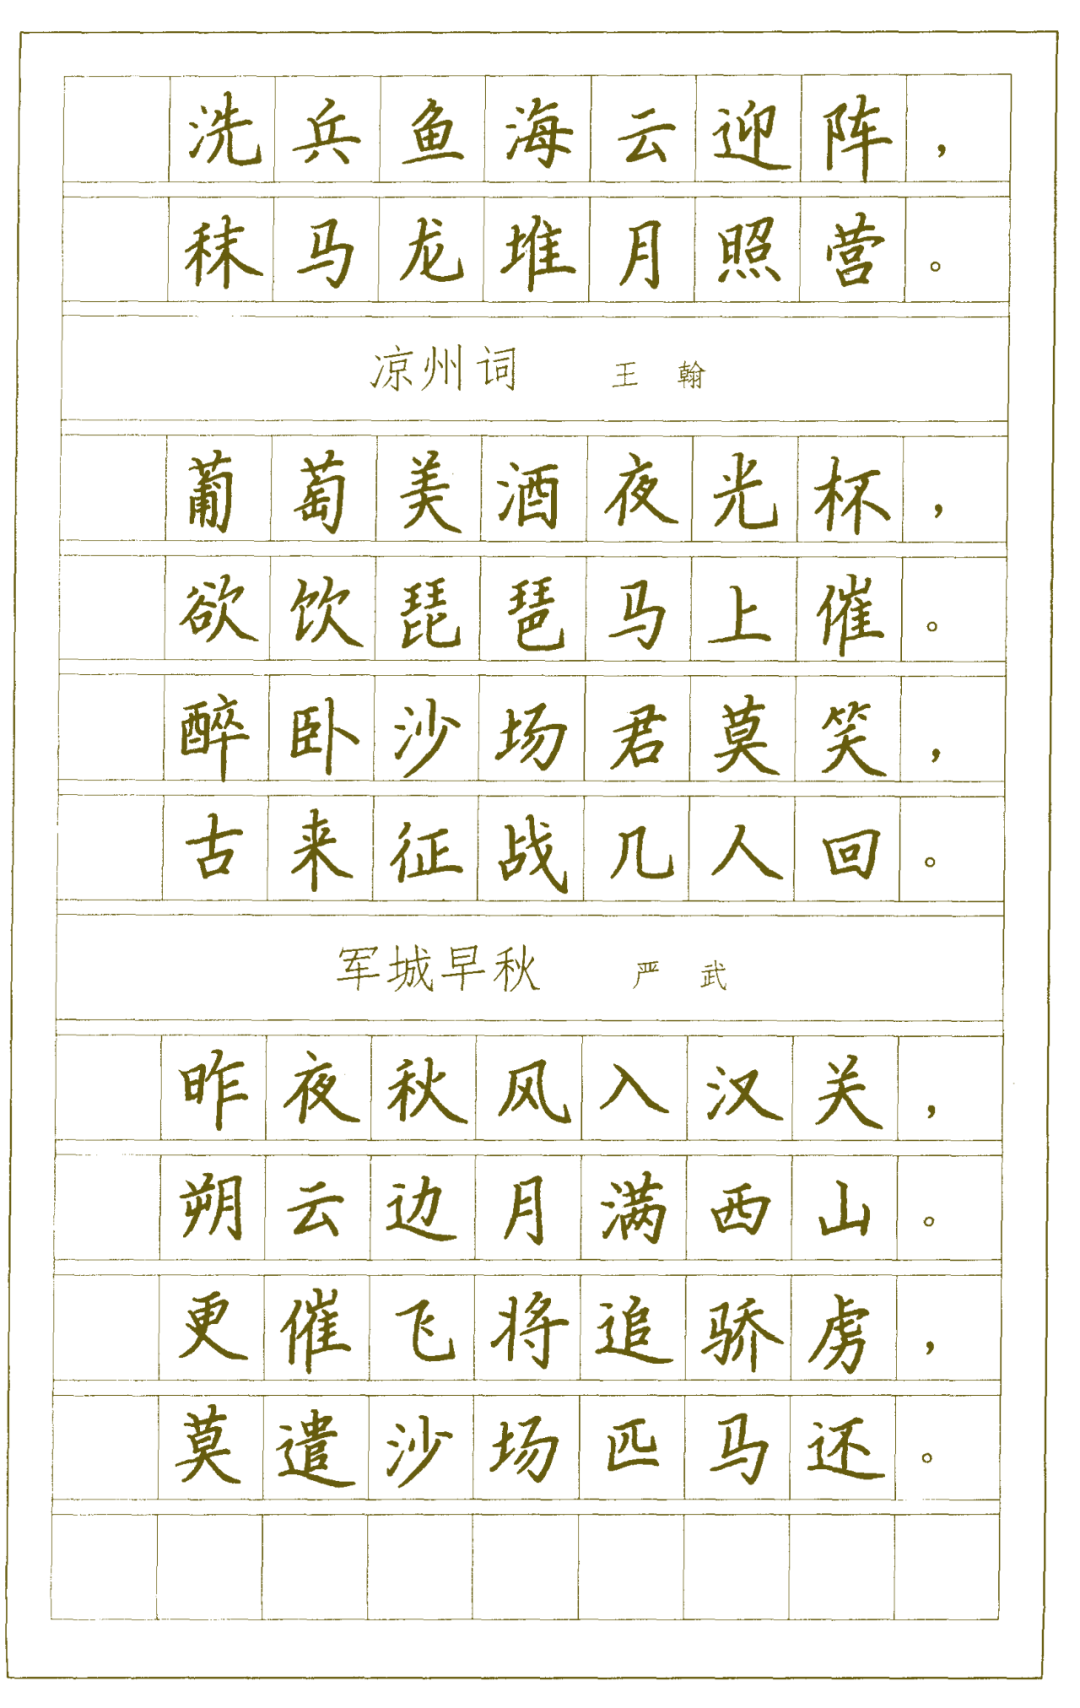 洗兵鱼海云迎阵，
秣马龙堆月照营。
凉州词 王翰
葡萄美酒夜光杯，
欲饮琵琶马上催。
醉卧沙场君莫笑，
古来征战几人回。
军城早秋 严武
昨夜秋风入汉关，
朔云边月满西山。
更催飞将追骄虏，
莫遣沙场匹马还。